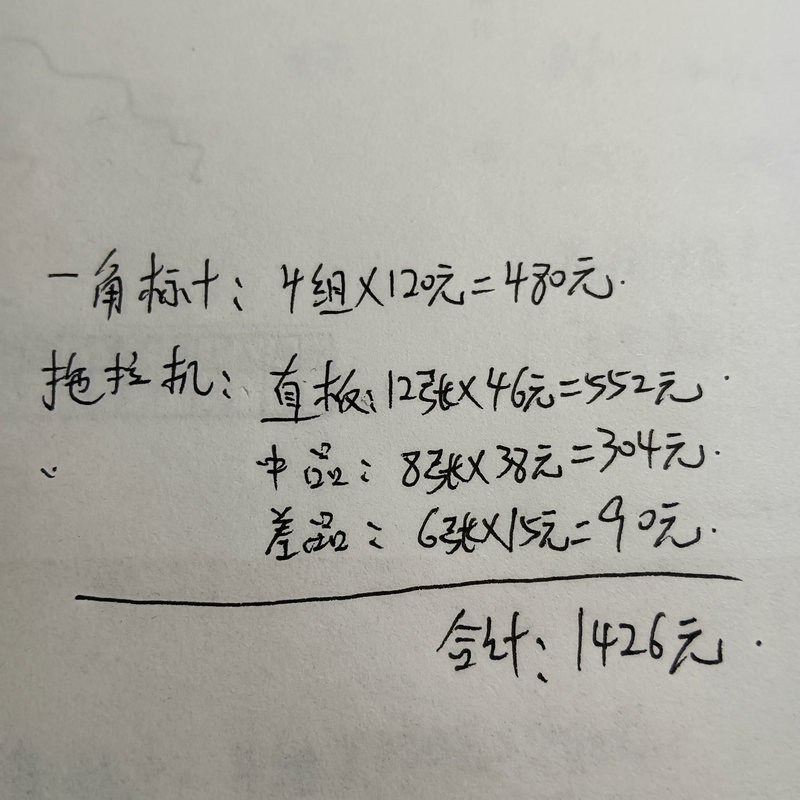 一角标十：4组×120元=480元.
拖拉机：直板：12张×46元=552元.
中品：8张×38元=304元.
差品：6张×15元=90元.
合计：1426元.